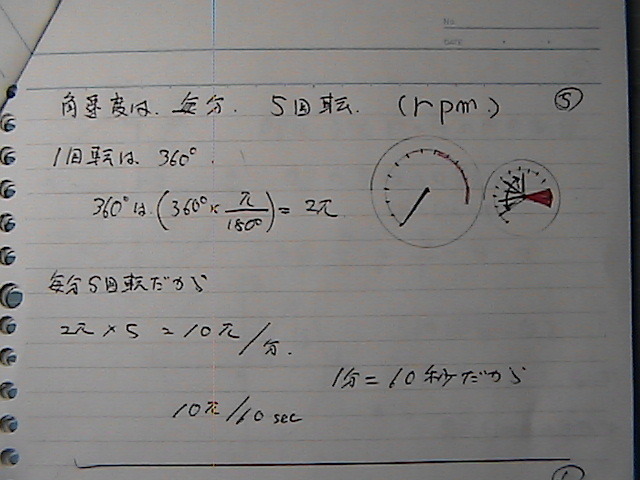 NO.
DATE
角速度は、毎分、5回転、(rpm) ⑤
1回転は、360°.
360°は (360° × π/180°) = 2π
毎分5回転だから
2π × 5 = 10π/分.
1分 = 60秒だから
10π/60 sec